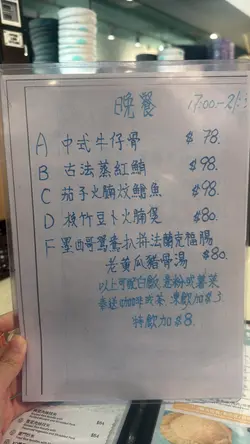 晚餐 17:00-21:
A 中式牛仔骨 $78.
B 古法蒸紅鮋 $98.
C 茄子火腩炆鱔魚 $98.
D 枝竹豆卜火腩煲 $80.
F 墨西哥鴛鴦扒拼法蘭克福腸
老黄瓜豬骨湯 $80.
以上可配白飯 意粉或薯菜
奉送 或茶 凍飲加$3
特飲加$8.